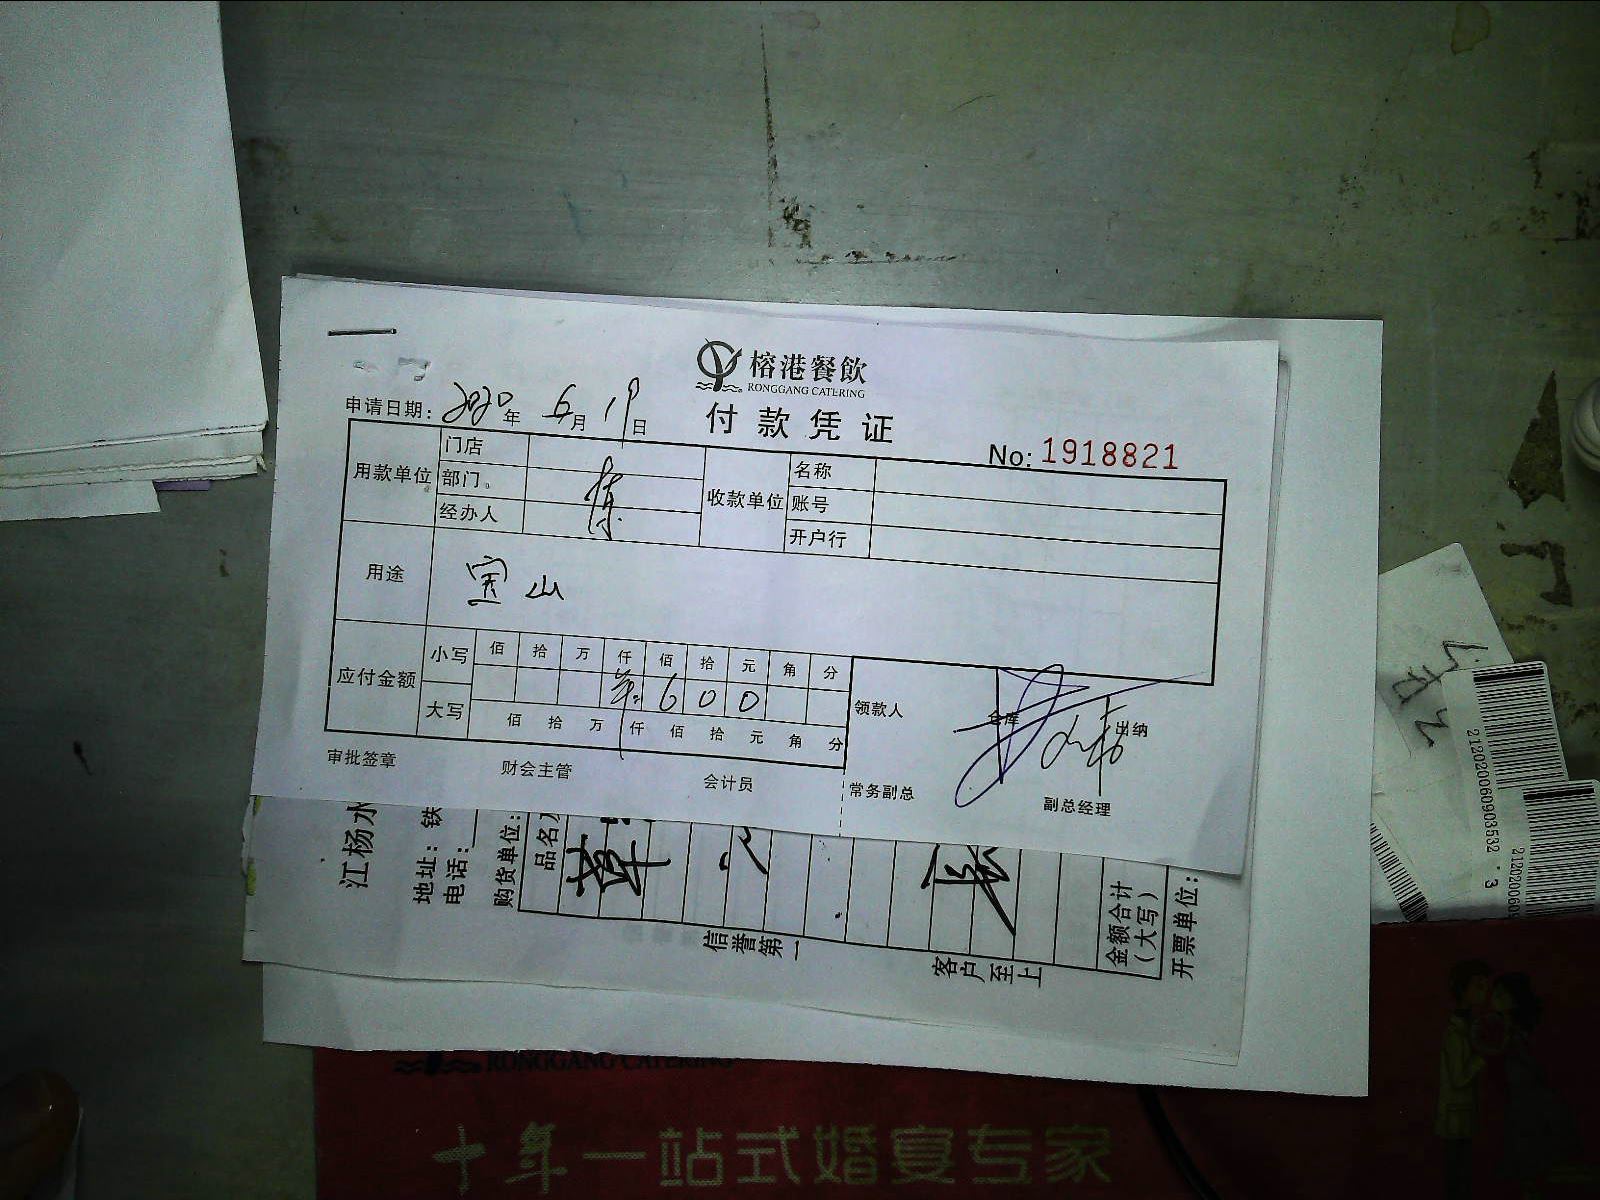 榕港餐飲
RONGGANG CATERING
申请日期: 2020年 6月 19日
付款凭证
No: 1918821
用款单位 门店
部门
经办人
收款单位 名称
账号
开户行
用途 宝山
应付金额 小写 佰 拾 万 仟 佰 拾 元 角 分
600
大写 佰 拾 万 仟 佰 拾 元 角 分
领款人 仓库 出纳
审批签章 财会主管 会计员 常务副总 副总经理
江杨水
地址: 铁
电话:
购货单位:
品名
信誉第一
客户至上
金额合计
(大写)
开票单位:
212020060903532 3
21202006
RONGGANG CATERING
十年一站式婚宴专家